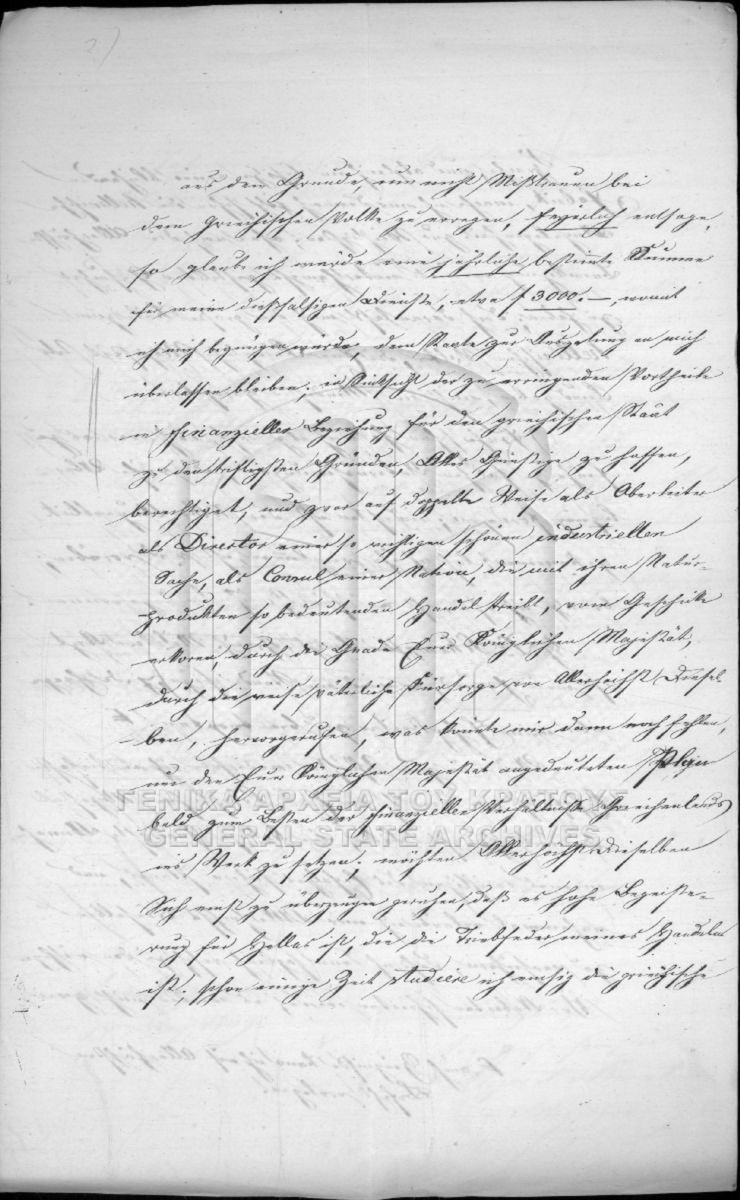 2)
aus dem Grunde, um nicht Mißtrauen bei
dem griechischen Volke zu erregen, feyerlich entsage,
so glaube ich würde eine jährliche bestimte Summe
für meine dießfalsigen Dienste, etwa f 3000.—, womit
ich mich begnügen würde, dem Staate zur Ausgebung an mich
überlassen bleiben; in Rücksicht der zu erringenden Vortheile
in finanzieller Beziehung für den griechischen Staat
zu den triftigsten Gründen, Alles Günstige zu hoffen,
berechtiget, und zwar auf doppelte Weise als Oberleiter
als Director einer so wichtigen schönen industriellen
Sache, als Consul einer Nation, die mit ihren Natur-
produkten so bedeutenden Handel treibt, vom Geschicke
erkoren, durch die Gnade Euer Königlichen Majestät,
durch die weise väterliche Fürsorge von Allerhöchst Diesel-
ben, hervorgerufen, was könnte mir dann noch fehlen,
um den Euer Königlichen Majestät angedeuteten Plan
bald zum Besten der finanziellen Verhältnisse Griechenlands
ins Werk zu setzen; möchten Allerhöchst Dieselben
Sich erst zu überzeugen geruhen, daß es hohe Begeiste-
rung für Hellas ist, die die Triebfeder meines Handelns
ist; schon einige Zeit studiere ich emsig die griechische
ΓΕΝΙΚΑ ΑΡΧΕΙΑ ΤΟΥ ΚΡΑΤΟΥΣ
GENERAL STATE ARCHIVES